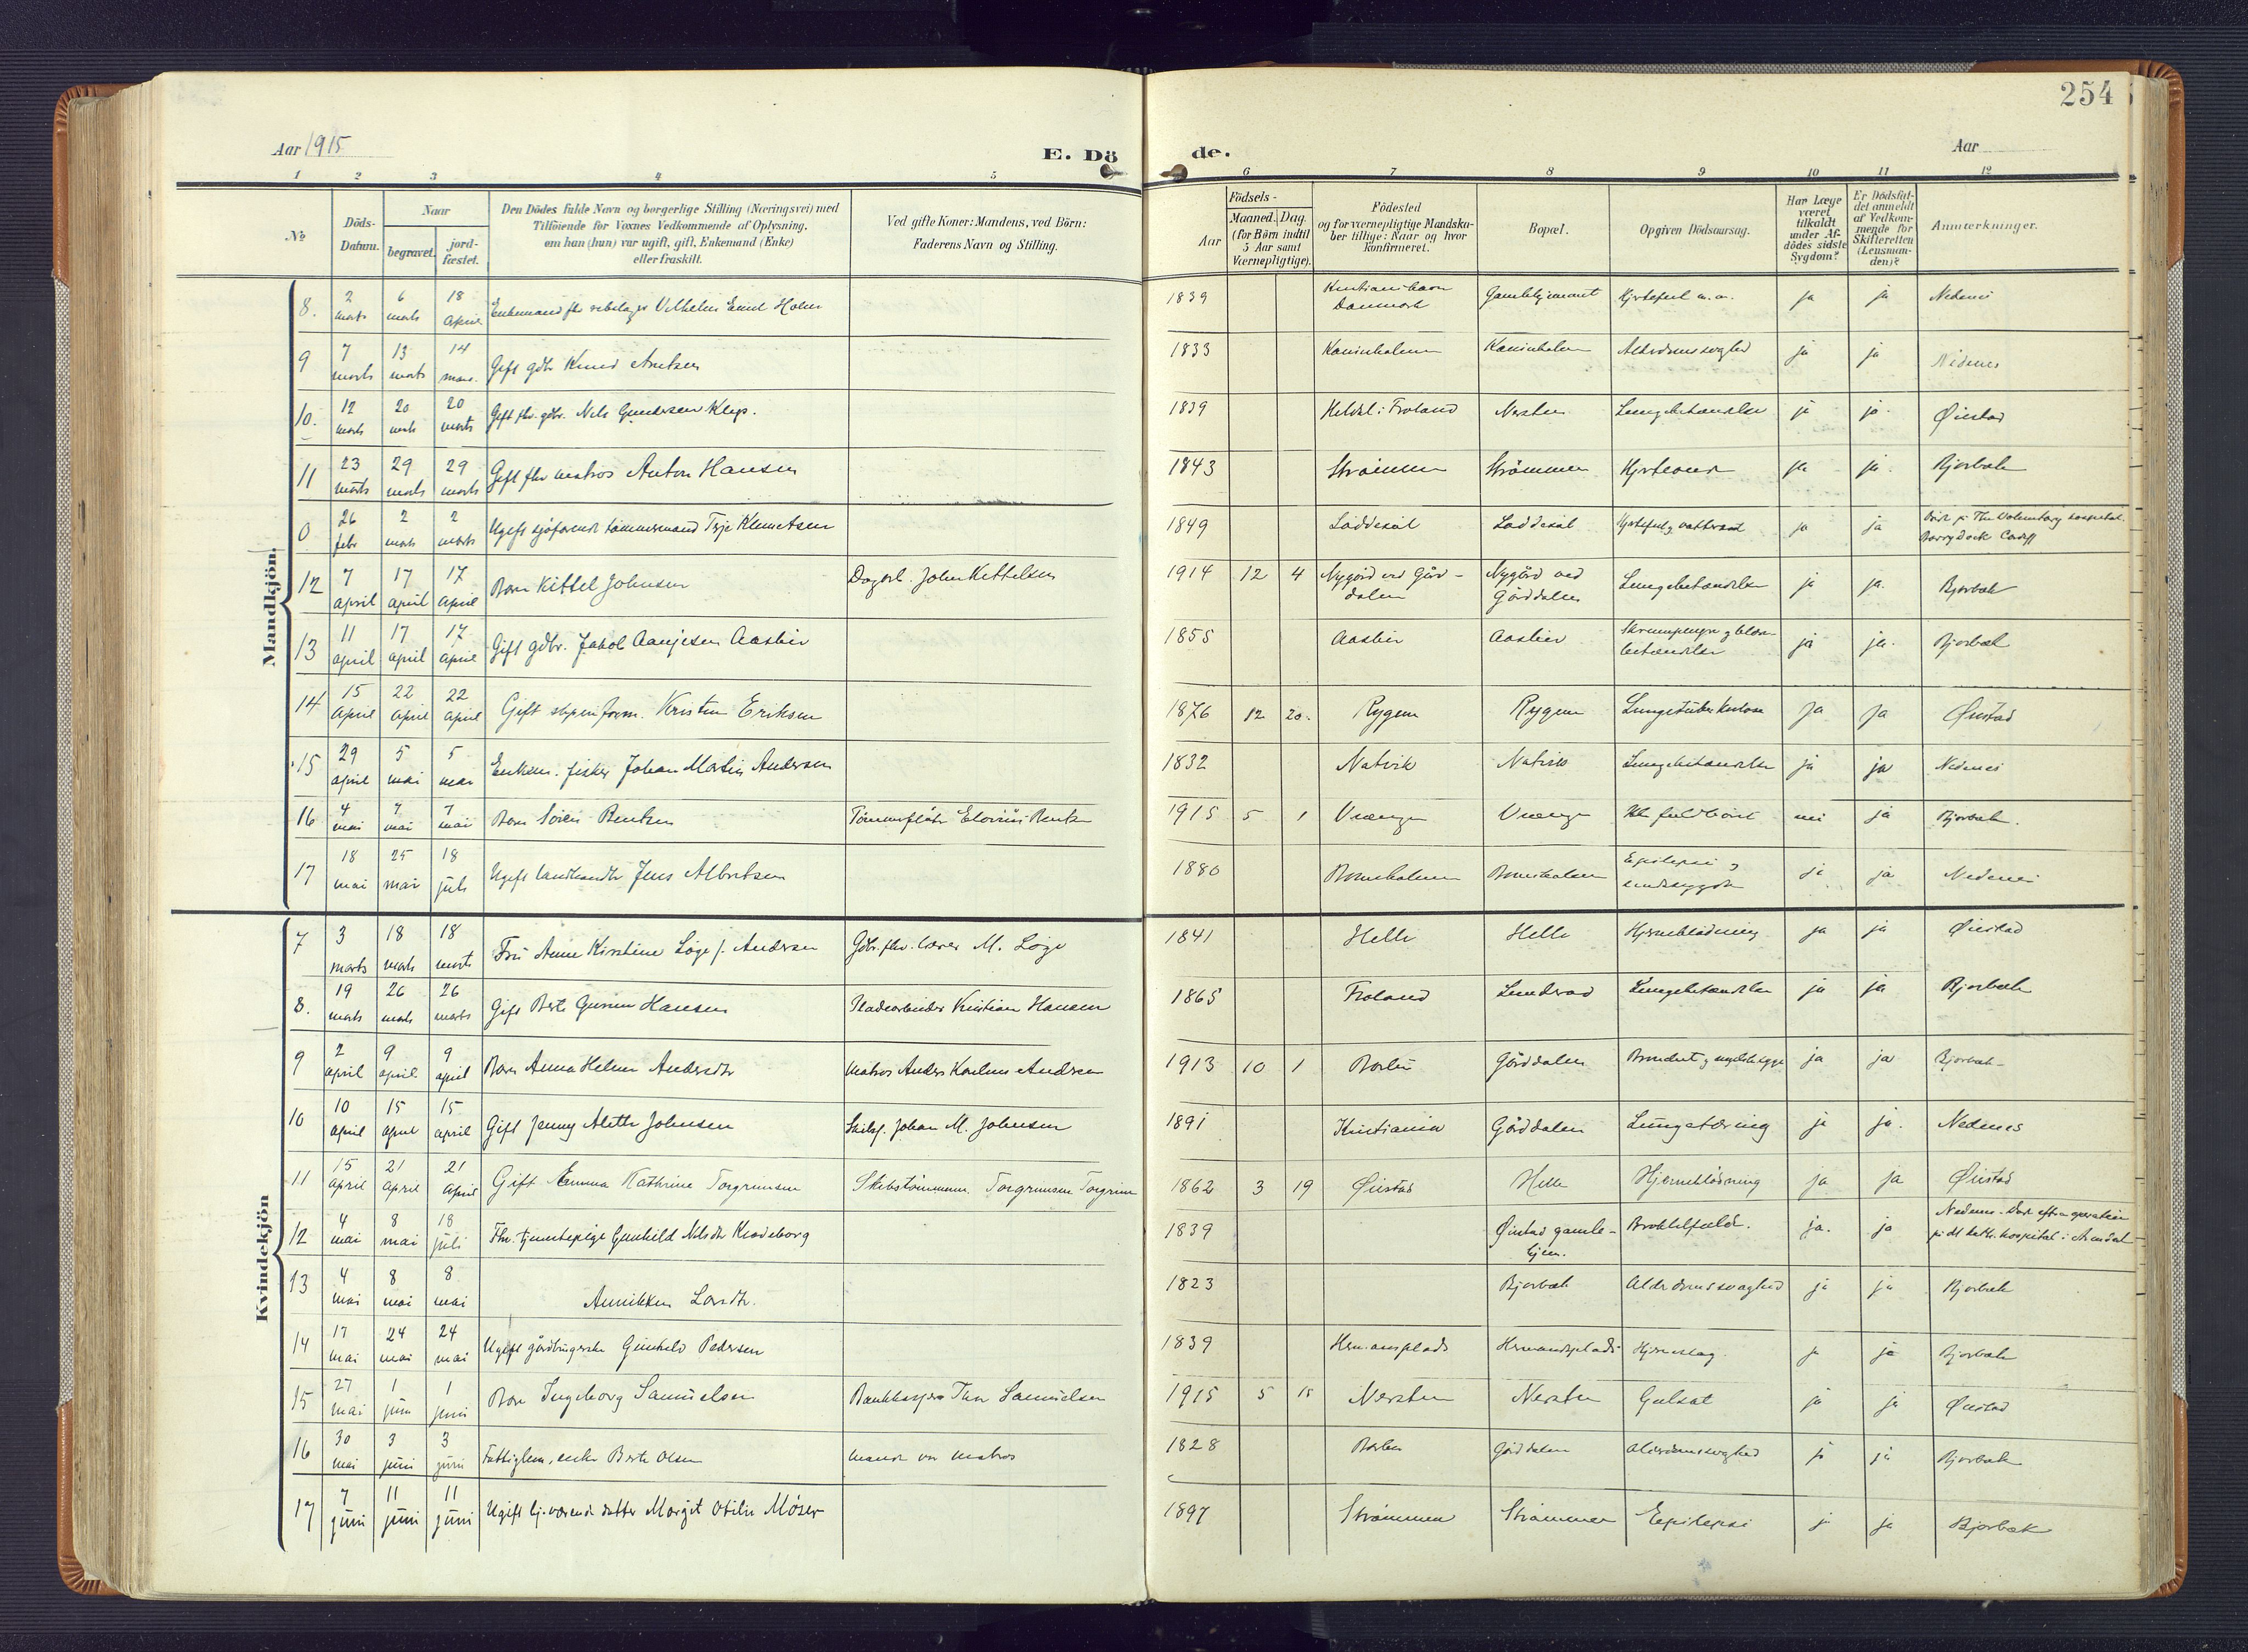 254
Aar 1915
E. Dö de.
Aar
1 2 3 4 5 6 7 8 9 10 11 12
№
Döds-Datum.
Naar
begravet.
jord-fæstet.
Den Dödes fulde Navn og borgerlige Stilling (Næringsvei) med
Tilföiende for Voxnes Vedkommende af Oplysning,
om han (hun) var ugift, gift, Enkemand (Enke)
eller fraskilt.
Ved gifte Koner: Mandens, ved Börn:
Faderens Navn og Stilling.
Födsels-
Aar
Maaned. Dag.
(for Börn indtil
5 Aar samt
Værnepligtige).
Födested
og for værnepligtige Mandska-
ber tillige: Naar og hvor
konfirmeret.
Bopæl.
Opgiven Dödsaarsag.
Har Læge
været
tilkaldt
under Af-
dödes sidste
Sygdom?
Er Dödsfal-
det anmeldt
af Vedkom-
mende for
Skifteretten
(Lensman-
den)?
Anmærkninger.
Mandkjön.
8. 2 marts 6 marts 18 april Enkemand fhv rebslager Vilhelm Emil Holm 1839 Kristianshavn Danmark Gamlehjemmet Hjertefeil m.m. ja ja Nedenes
9 7 marts 13 marts 14 mars Gift gdbr Knud Arntsen 1833 Kaninholmen Kaninholmen Alderdomssvaghed ja ja Nedenes
10. 12 marts 20 marts 20 marts Gift fhv. gdbr. Nils Gundersen Klep. 1839 Heldal i Froland Nersten Lungebetændelse ja ja Øiestad
11 23 marts 29 marts 29 marts Gift fhv matros Anton Hansen 1843 Strömmen Strömmen Hjerteonde ja ja Bjorbæk
0 26 febr 2 marts 2 marts Ugift sjöfarende tömmermand Terje Klemetsen 1849 Löddesöl Löddesöl Hjertefeil og vattersot ja ja Död på The Voluntary hospital Barry Dock Cardiff
12 7 april 17 april 17 april Barn Kittel Johnsen Dagarb. John Kittelsen 1914 12 4 Nygård ved Gård-dalen Nygård ved Gårddalen Lungebetændelse ja ja. Bjorbæk
13 11 april 17 april 17 april Gift gdbr. Jakob Aanjesen Aasbie 1855 Aasbie Aasbie Skrumpnyre og blære-betændelse ja ja. Bjorbæk
14 15 April 22 April 22 April Gift sliperiform. Kristen Eriksen 1876 12 20. Rygene Rygene Lungetuberkulose ja ja Øiestad
15 29 april 5 mai 5 mai Enkem. fisker Johan Martin Andersen 1832 Natvik Natvik Lungebetændelse ja ja Nedenes
16 4 mai 7 mai 7 mai Barn Sören Bentsen 1915 5 1 Vrænge Vrænge Ikke fuldbåret nei ja Bjorbæk.
17 18 mai 25 mai 18 juli Ugift landhandler Jens Albertsen 1880 Bomsholmen Bomsholmen Epilepsi og sindssygdom ja ja Nedenes
Kvindekjön
7 3 marts 18 marts 18 marts Fru Anne Kirstine Löge f. Andersen Gdbr. fhv. lærer M. Löge 1841 Helle Helle Hjerneblödning ja ja Øiestad
8. 19 marts 26 marts 26 marts Gift Berte Gurine Hansen Pladsarbeider Kristian Hansen 1865 Froland Lunderöd Lungebetændelse ja ja Bjorbæk
9 2 april 9 april 9 april Barn Anna Helene Andersdtr matros Anders Karelius Andersen 1913 10 1 Barlie Gårddalen Bronchit og engelsk syge ja ja Bjorbæk
10 10 april 15 april 15 april Gift Jenny Alethe Johnsen Skibsf. Johan M. Johnsen 1891 Kristiania Gårddalen Lungetæring ja ja. Nedenes
11 15 April 21 April 21 April Gift Emma Kathrine Torgrimsen Skibstömmerm. Torgrimsen Torgrim 1862 3 19 Øiestad Helle Hjerneblödning ja ja Øiestad
12 4 mai 8 mai 18 juli Fhv. tjenestepige Gunhild Nilsdtr Krödeborg 1839 Øiestad gamle-hjem. Brokktilfælde. ja. ja Nedenes. Död efter operation på det kath. hospital i Arendal
13 4 mai 8 mai 8 mai Annikken Larsdtr. 1823 Bjorbæk Alderdomssvaghed ja ja Bjorbæk
14 17 mai 24 mai 24 mai Ugift gårdbrugerske Gunhild Pedersen 1839 Hermansplads Hermansplads Hjerneslag. ja ja Bjorbæk
15 27 mai 1 juni 1 juni Barn Ingeborg Samuelsen Bankkasserer Thor Samuelsen 1915 5 15 Nersten Nersten Gulsot ja ja Øiestad
16 30 mai 3 juni 3 juni Fattiglem, enke Berte Olsen mand var matros 1828 Gårddalen Alderdomssvaghed ja ja Bjorbæk
17 7 juni 11 juni 11 juni Ugift hj. værende datter Margit Otilie Möser 1897 Strömmen Strömmen Epilepsi ja ja Bjorbæk